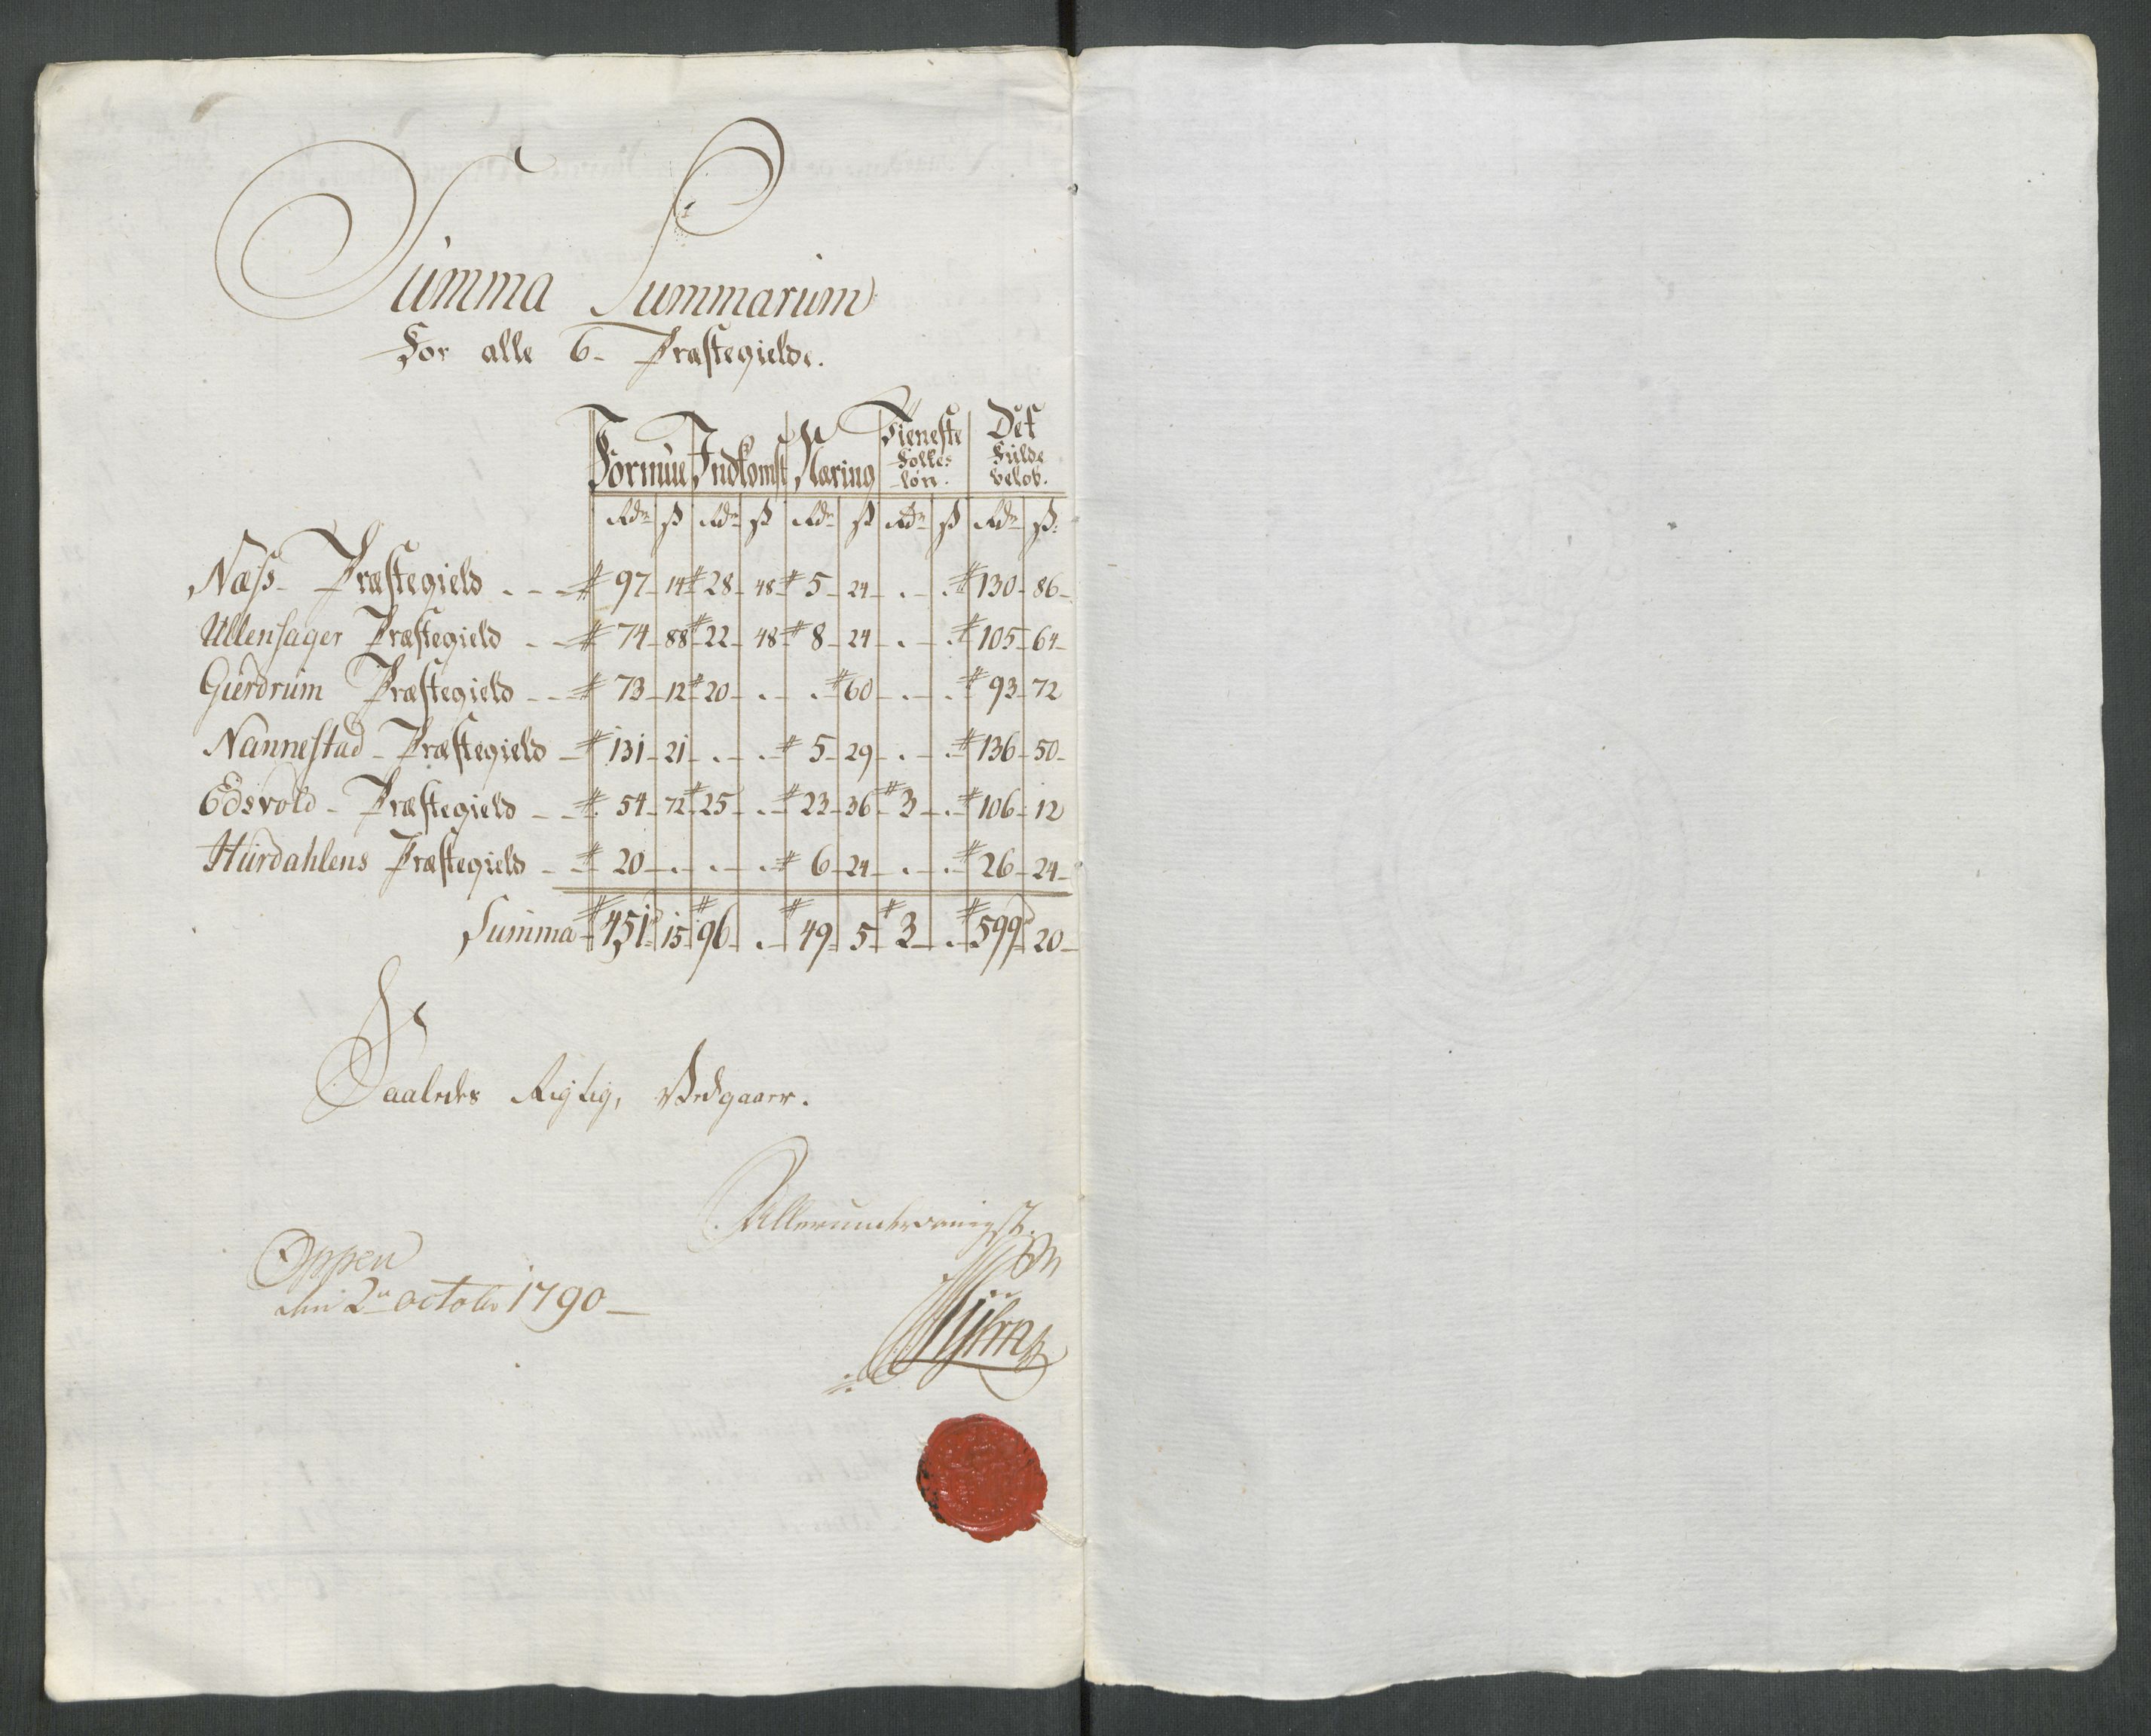 Summa Summarum
For alle 6- Præstegielde.
Formue Indkomst Næring Tieneste Folkes løn. Det Fulde beløb.
Rdr ß Rdr ß Rdr ß Rdr ß Rdr ß
Næss- Præstegield . - - # 97 14 # 28 48 # 5 24 . - . # 130 86
Ullensager Præstegield - - # 74 88 # 22 48 # 8 24 . - . # 105 64
Gierdrum Præstegield - - # 73 12 # 20 . - . # 60 . - . # 93 72
Nannestad - Præstegield - # 131 21 . - . # 5 29 . - . # 136 50
Edsvold - Præstegield - - # 54 72 # 25 . # 23 36 # 3 . # 106 12
Hurdahlens Præstegield - # 20 . . - . # 6 24 . - . # 26 24
Summa # 451 15 # 96 . # 49 5 # 3 . # 599 20
Saaledes Rigtig, Vedgaaer.
Allerunderdanigst
Oppen
den 2den octobr 1790